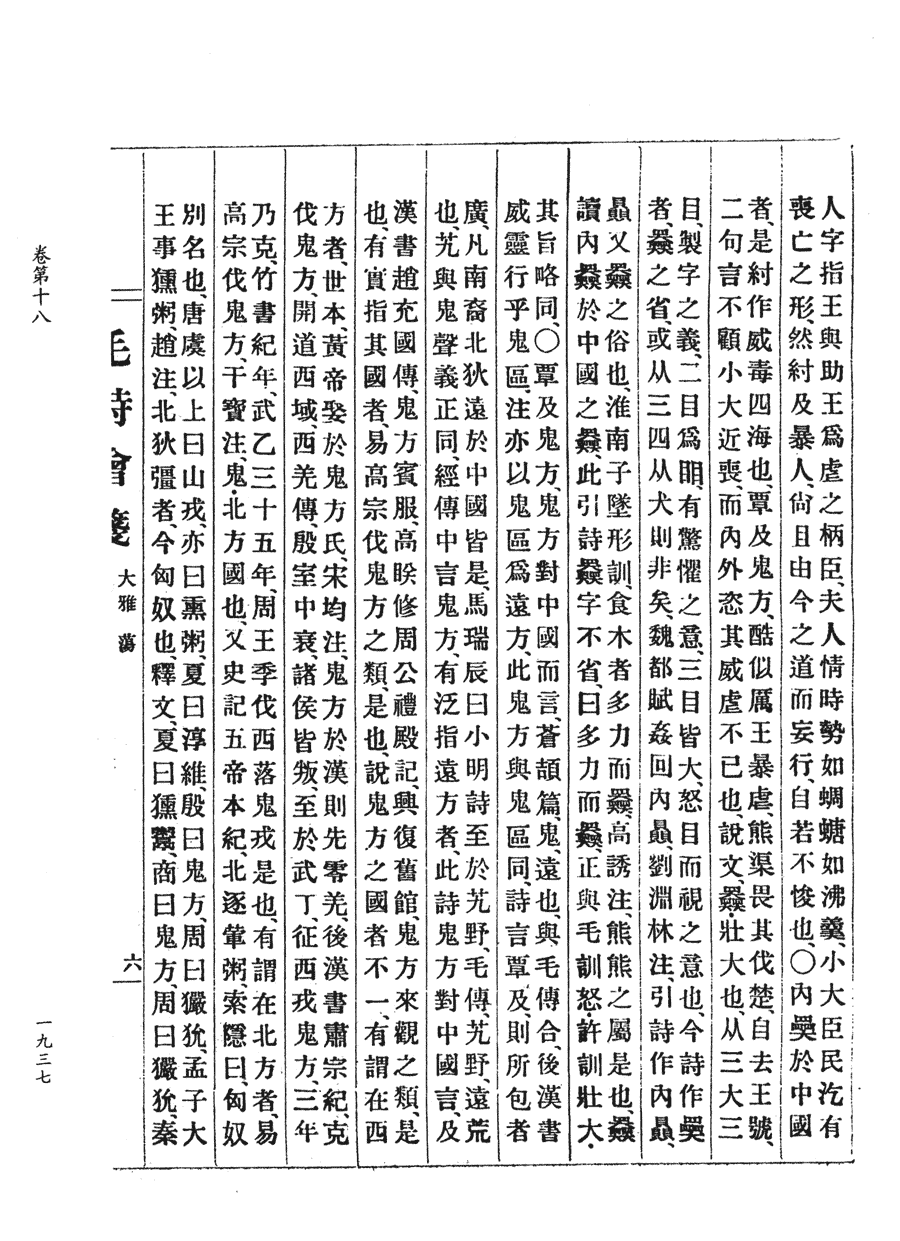 人字指王與助王爲虐之柄臣、夫人情時勢如蜩螗如沸羹、小大臣民汔有
喪亡之形、然紂及暴人、尙且由今之道而妄行、自若不悛也、〇內奰於中國
者、是紂作威毒四海也、覃及鬼方、酷似厲王暴虐、熊渠畏其伐楚、自去王號、
二句言不顧小大近喪、而內外恣其威虐不已也、說文、𡚤・壯大也、从三大三
目、製字之義、二目爲䀠、有驚懼之意、三目皆大、怒目而視之意也、今詩作奰
者、𡚤之省、或从三四从犬則非矣、魏都賦姦回內贔、劉淵林注、引詩作內贔、
贔又𡚤之俗也、淮南子墜形訓、食木者多力而𡚤、高誘注、熊熊之屬是也、𡚤
讀內𡚤於中國之𡚤、此引詩𡚤字不省、曰多力而𡚤、正與毛訓怒・許訓壯大・
其旨略同、〇覃及鬼方、鬼方對中國而言、蒼頡篇、鬼、遠也、與毛傳合、後漢書
威靈行乎鬼區、注亦以鬼區爲遠方、此鬼方與鬼區同、詩言覃及、則所包者
廣、凡南裔北狄遠於中國皆是、馬瑞辰曰小明詩至於艽野、毛傳、艽野、遠荒
也、艽與鬼聲義正同、經傳中言鬼方、有泛指遠方者、此詩鬼方對中國言、及
漢書趙充國傳、鬼方賓服、高眹修周公禮殿記、興復舊館、鬼方來觀之類、是
也、有實指其國者、易高宗伐鬼方之類、是也、說鬼方之國者不一、有謂在西
方者、世本、黃帝娶於鬼方氏、宋均注、鬼方於漢則先零羌、後漢書肅宗紀、克
伐鬼方、開道西域、西羌傳、殷室中衰、諸侯皆叛、至於武丁、征西戎鬼方、三年
乃克、竹書紀年、武乙三十五年、周王季伐西落鬼戎是也、有謂在北方者、易
高宗伐鬼方、干寶注、鬼・北方國也、又史記五帝本紀、北逐葷粥、索隱曰、匈奴
別名也、唐虞以上曰山戎、亦曰熏粥、夏曰淳維、殷曰鬼方、周曰玁狁、孟子大
王事獯粥、趙注、北狄彊者、今匈奴也、釋文、夏曰獯鬻、商曰鬼方、周曰玁狁、秦
毛詩會箋
大雅 蕩
六
卷第十八
一九三七